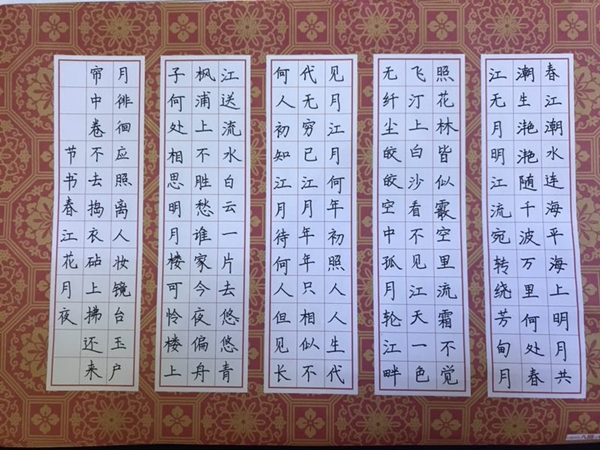 春江潮水连海平海上明月共
潮生滟滟随千波万里何处春
江无月明江流宛转绕芳甸月
照花林皆似霰空里流霜不觉
飞汀上白沙看不见江天一色
无纤尘皎皎空中孤月轮江畔
见月江月何年初照人人生代
代无穷已江月年年只相似不
何人初知江月待何人但见长
江送流水白云一片去悠悠青
枫浦上不胜愁谁家今夜偏舟
子何处相思明月楼可怜楼上
月徘徊应照离人妆镜台玉户
帘中卷不去捣衣砧上拂还来
节书春江花月夜